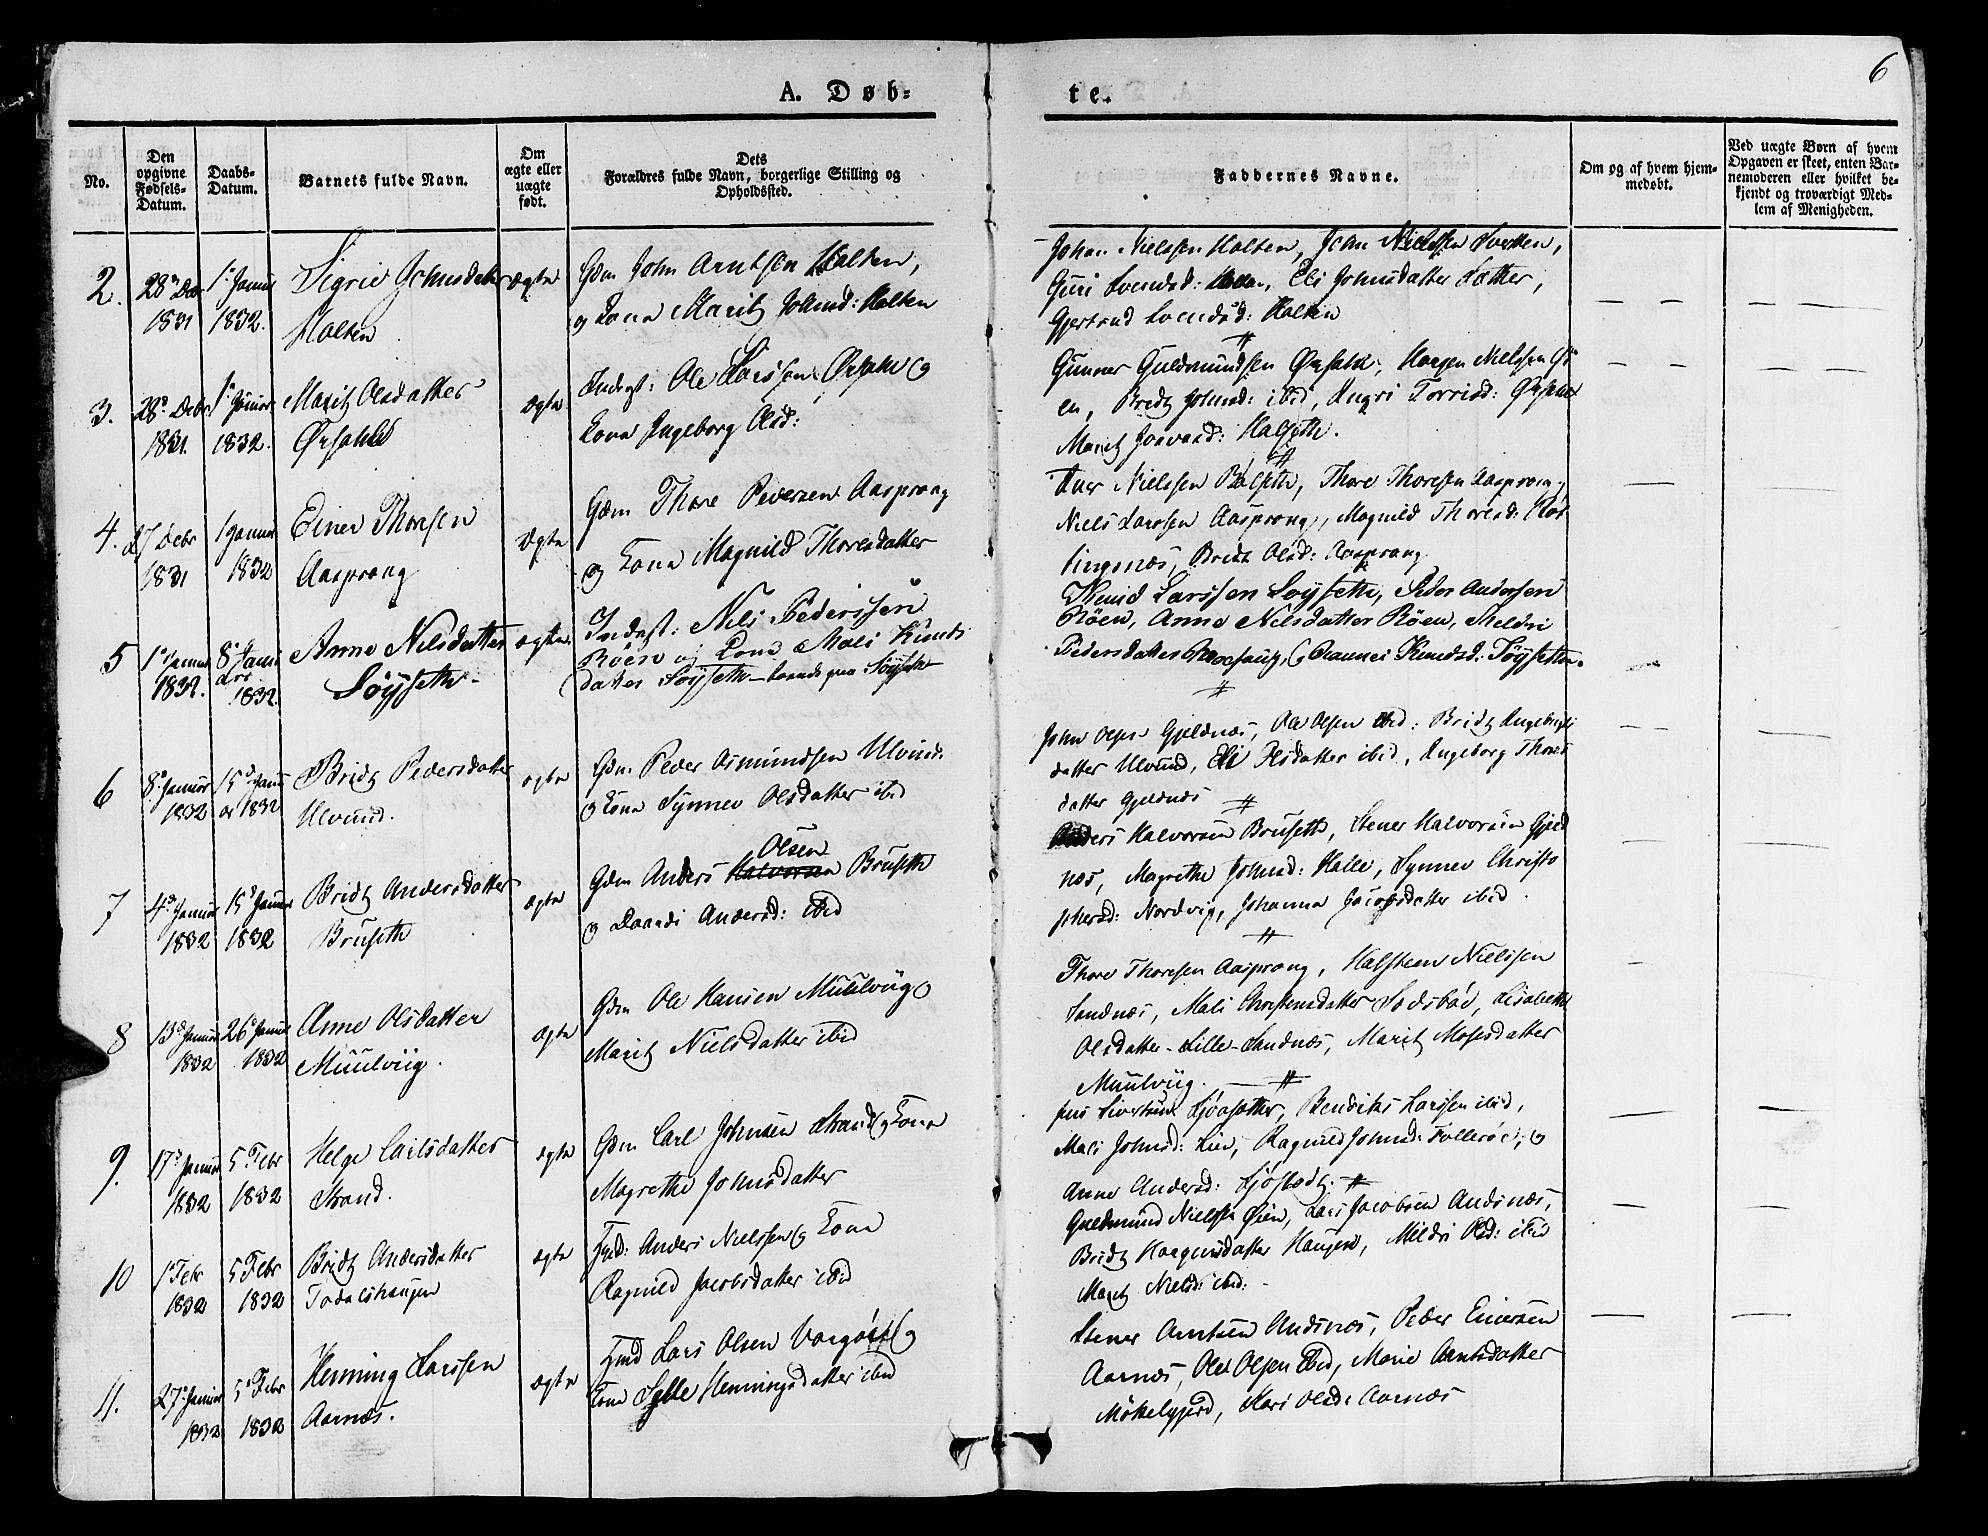 6
A. Døb-
te.
No.
Den opgivne Fødsels-Datum.
Daabs-Datum.
Barnets fulde Navn.
Om ægte eller uægte født.
Dets Forældres fulde Navn, borgerlige Stilling og Opholdssted.
Faddernes Navne.
Om og af hvem hjemmedøbt.
Ved uægte Børn af hvem Opgaven er skeet, enten Barnemoderen eller hvilket bekjendt og troværdigt Medlem af Menigheden.
2. 28de Decbr 1831
1ste Januar 1832.
Sigrie Johnsdatter
Holten
ægte
Gdm John Arntsen Holten,
og Kona Marit Johnsd: Holten
Johan Nielssen Holten, John Nielssen
Guri Svendsd: Holten, Eli Johnsdatter Sætter,
Gjertrud Svendsd: Holten
3. 28de Decbr 1831.
1ste Januar 1832.
Marit Olsdatter
Ørsahl
ægte
Indgst: Ole Larssen Ørsahl og
Kona Ingeborg Olsd:
Gunner Guldmundsen Ørsahl, Haagen Nielssen Øi-
en, Bridt Johnsd: ibid,
Marit Joervard: Halseth.
4. 27 Decbr 1831
1 Januar 1832
Einer Thoresen
Aasprong
ægte
Gdm Thore Pedersen Aasprong
og Kona Magnild Thoresdatter
Iver Nielssen Bølseth, Thore Thoresen Aasprong,
Niels Larssen Aasprong, Magnild Thoresd:
lingsnæs, Bridt Olsd: Aasprong
5 1ste Januar 1832.
8de Januar 1832
Anne Nilsdatter
Søyseth
ægte
Indgst: Nils Pederssen
Röen og Kona Mali Knuds
datter Søyseth
Knud Larssen Søyseth, Peder Andersen
Röen, Anne Nilsdatter Röen, Meldri
Pedersdatter Knudsd: Søyseth.
6 8de Januar 1832
15de Januar 1832
Bridt Pedersdatter
Ulvund.
ægte
Gdm. Peder Asmundsen Ulvund.
og Kona Synnev Olsdatter ibid
John Olsen Gjeldnæs, Ole Olsen ibid: Bridt Ingebrigts
datter Ulvund, Eli Olsdatter ibid, Ingeborg Thores
datter Gjeldnæs
7 4de Januar 1832
15de Januar 1832
Bridt Andersdatter
Bruseth
ægte
Gdm Anders Olsen Bruseth
og Andersd: ibid
Anders Halvorsen Bruseth, Stener Halvorsen Gjeld
næs, Magrethe Johnsd: Halle, Synnev Christo
phersd: Nordvig, Johanna Jacobsdatter ibid.
8 13de Januar 1832
26de Januar 1832
Anne Olsdatter
Muulvüg.
ægte
Gdm Ole Hansen Muulvüg og
Marit Nielsdatter ibid
Thore Thoresen Aasprong, Halsteen Nielssen
Sandnæs, Mali Christensdatter Lisabeth
Olsdatter Lille-Sandnæs, Marit Mosesdatter
Muulvüg.
9. 17de Januar 1832
5 Febr 1832
Helge Carlsdatter
Strand.
ægte
Gdm Carl Johnsen Strand og Kona
Magrethe Johnsdatter
Sivertsen Bendiks Larssen ibid,
Mali Johnsd: Lien, Ragnild Johnsd: Folleröe, og
Anne Andersd:
10 1ste Febr 1832
5 Febr 1832
Bridt Andersdatter
Todalshaugen
ægte
Anders Nielssen og Kona
Ragnild Jacobsdatter ibid
Guldmund Nielsen Øien, Lars Jacobsen Andsnæs,
Bridt Haagensdatter Haugen, Mildri Olsd: ibid
Marit Nielsd: ibid.
11. 27de Januar 1832
5te Febr 1832
Henning Larssen
Aarnæs.
ægte
Lars Olsen og
Kona Henningsdatter ibid
Stener Arntsen Andsnæs, Peder Einersen
Aarnæs, Ole Olsen ibid, Marie Arntsdatter
Møkelgjerd, Kari Olsd: Aarnæs